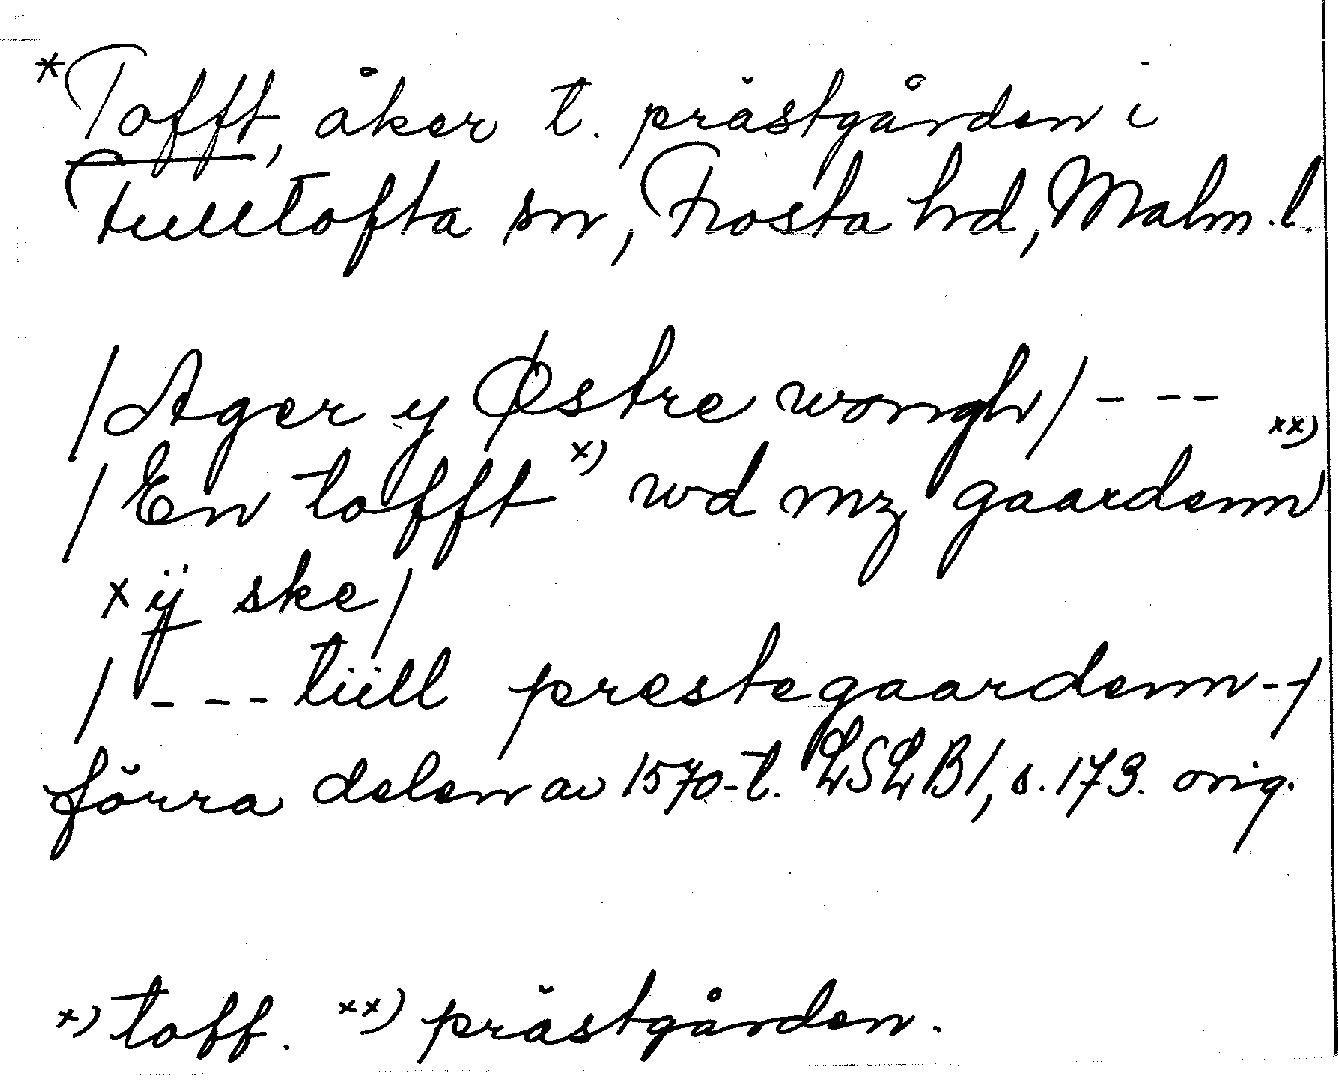 *Tofft, åker t. prästgården i
Fulltofta sn, Frosta hd, Malm. l.
/Ager y Østre wongh/ - - -
/En tofft x) wd mz gaardenn xx)
x ÿ ske/
/- - - tiill prestegaardenn - -/
förra delen av 1570-t. LSLB1, s. 173. orig.
x) toff. xx) prästgården.